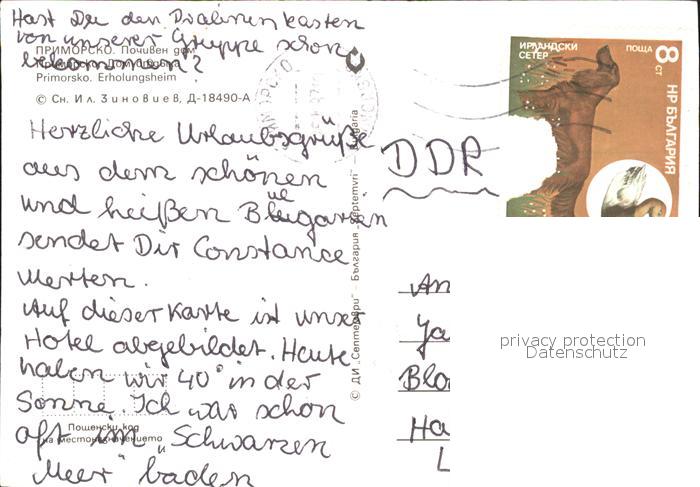 Hast Du den Pralinenkasten
von unserer Gruppe schon
bekommen?
ПРИМОРСКО. Почивен дом
Primorsko. Erholungsheim
© Сн. Ил. Зиновиев, Д-18490-А
Herzliche Urlaubsgrüße
aus dem schönen
und heißen Bulgarien
sendet Dir Constance
Merten.
Auf dieser Karte ist unser
Hotel abgebildet. Heute
haben wir 40° in der
Sonne. Ich war schon
oft im „Schwarzen
Meer" baden
Пощенски код
на местоназначението
© ДИ „Септември" — България „Septemvri" — Bulgaria
DDR
ИРЛАНДСКИ
СЕТЕР
ПОЩА
8
СТ
НР БЪЛГАРИЯ
An
Ja
Blo
Ha
L
privacy protection
Datenschutz